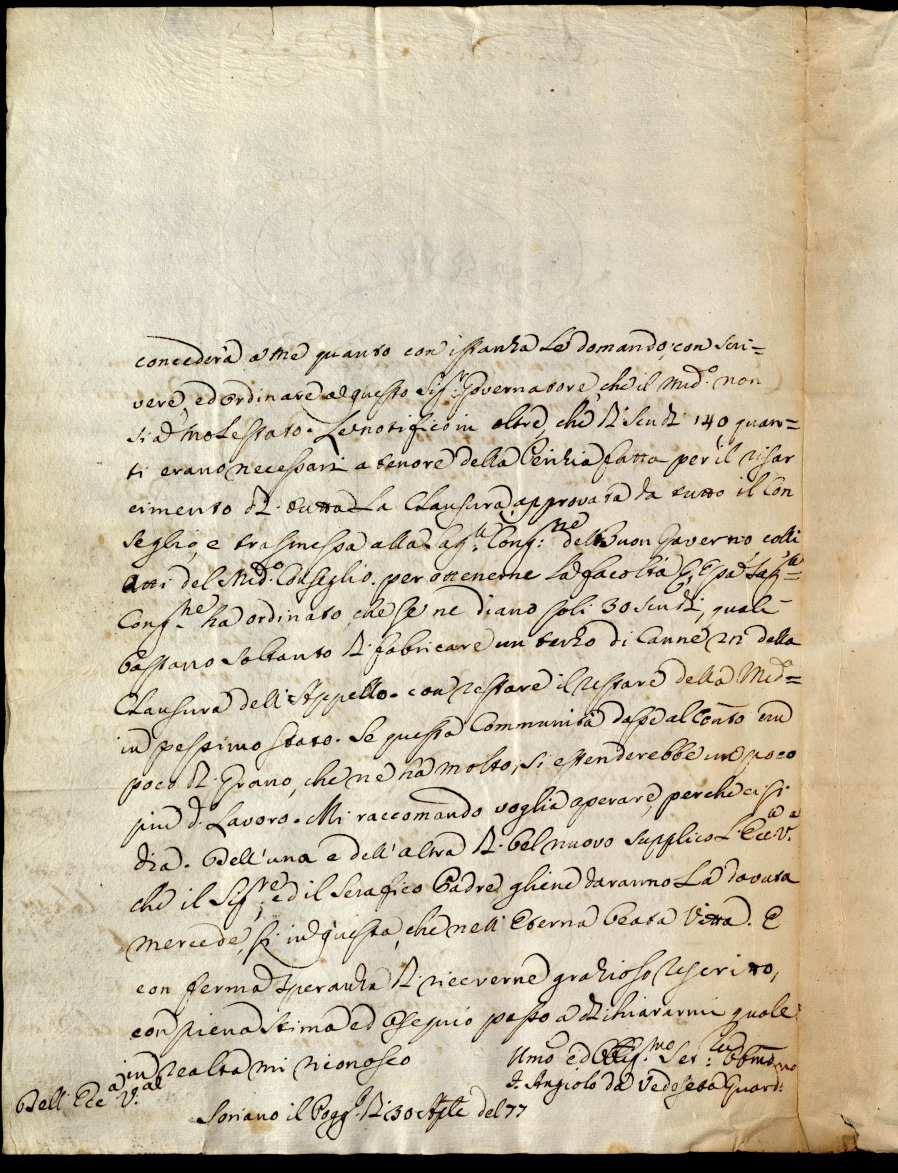 concederà a me quanto con istanza Le domando, con scri=
vere, ed ordinare a questo Sig.r Governatore, che il Med.o non
sia molestato. Le notifico in oltre, che di scudi 140 quan=
ti erano necessarii a tenore della Perizia fatta per il risar
cimento di tutta La Clausura, approvata da tutto il Con
seglio, e trasmessa alla Sag.ta Cong.ne del Buon Governo colli
Atti del Med.o Consiglio. per ottenerne La facoltà
Cong.ne ha ordinato, che se ne diano soli 30 scudi, quali
bastano soltanto di fabricare un terzo di Canne 212 della
Clausura dell'Appello. con restare il restare della Med.a=
in pessimo stato. Se questa Communità dasse al Con.to un
poco di Grano, che ne ha molto, si estenderebbe un poco
più d. Lavoro. Mi raccomando voglia operare, perche ci si
dia. Dell'una e dell'altra di bel nuovo supplico L'Ecc.a V.a
che il Sig.re, ed il Serafico Padre gliene daranno La dovuta
mercede, sì in questa, che nell'Eterna beata Vitta. E
con ferma speranza di riceverne grazioso rescritto,
con piena stima ed Osequio passo a dichiararmi quale
in realta mi riconosco
Dell'Ecc.a V.a
Umo ed Oblig.mo Ser.
F. Angiolo da Vedeseta Guard.
Soriano il Pogg.o di 30 Aple del 77